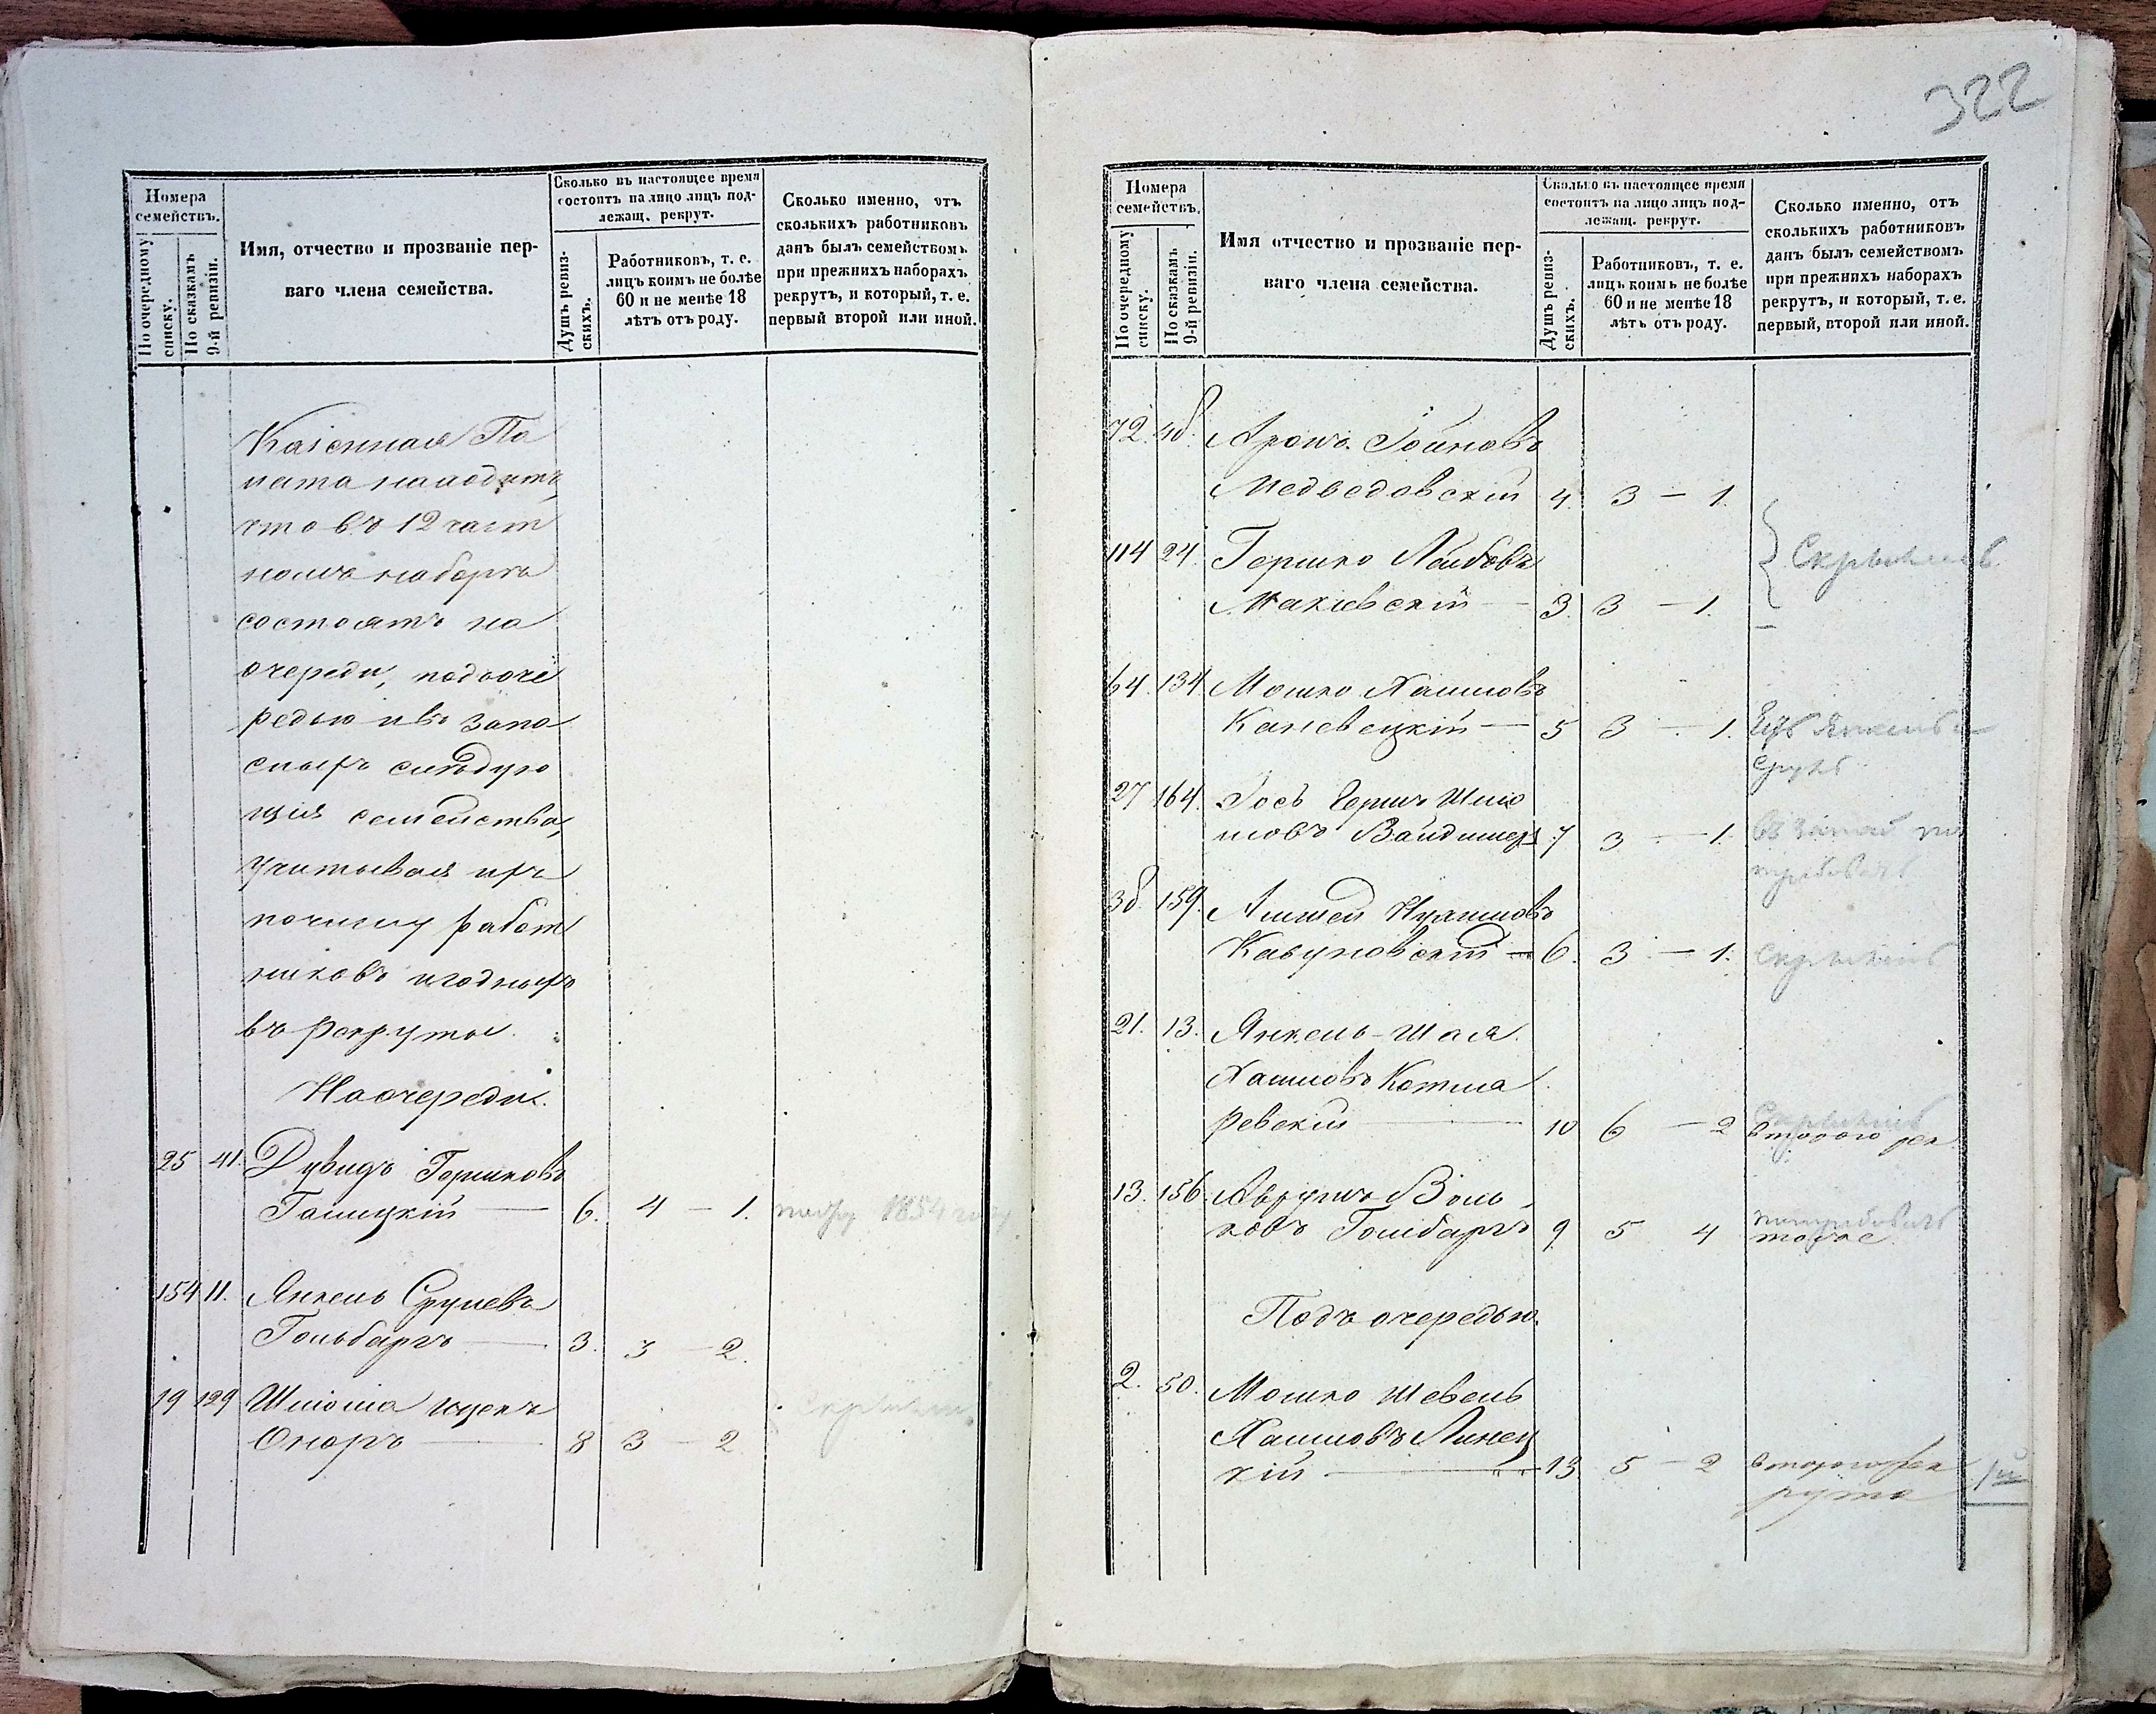 322
Номера
семействъ.
По очередному
списку.
По сказкамъ
9-й ревизіи.
Имя, отчество и прозваніе пер-
ваго члена семейства.
Сколько въ настоящее время
состоитъ на лицо лицъ под-
лежащ. рекрут.
Душъ ревиз-
скихъ.
Работниковъ, т. е.
лицъ коимъ не болѣе
60 и не менѣе 18
лѣтъ отъ роду.
Сколько именно, отъ
сколькихъ работниковъ
данъ былъ семействомъ
при прежнихъ наборахъ
рекрутъ, и который, т. е.
первый второй или иной.
Казенная Па
лата находитъ,
что въ 12 част
номъ наборѣ
состоятъ на
очереди, подъоче
редью и въ запа
сныхъ слѣдую
щія семейства,
учитывая ихъ
по числу работ
никовъ и годныхъ
въ рекруты
На очереди.
25 41. Дувидъ Гершковъ
Галицкій — 6. 4 — 1. 1854 году
154 11. Янкель Срулевъ
Гольбаргъ — 3. 3 — 2.
19 129 Шлiома
— 8 3 — 2
Номера
семействъ.
По очередному
списку.
По сказкамъ
9-й ревизіи.
Имя отчество и прозваніе пер-
ваго члена семейства.
Сколько въ настоящее время
состоитъ на лицо лицъ под-
лежащ. рекрут.
Душъ ревиз-
скихъ.
Работниковъ, т. е.
лицъ коимъ не болѣе
60 и не менѣе 18
лѣтъ отъ роду.
Сколько именно, отъ
сколькихъ работниковъ
данъ былъ семействомъ
при прежнихъ наборахъ
рекрутъ, и который, т. е.
первый, второй или иной.
72. 48. Аронъ Гойновъ
Медведовскій 4. 3 — 1.
114 24. Гершко Лейбовъ
Макіевскій — 3. 3 — 1.
64. 134 Мошко Хаимовъ
Каневецкій — 5 3 — 1.
27 164. Іось Гершъ Шлiо
мовъ 7 3 — 1.
38. 159.
Кавуновскій — 6. 3 — 1.
21. 13. Янкель-Шая
Хаимовъ Котля
ревскій — 10 6 — 2 втораго рек
13. 156. Аврумъ Воль
ковъ Гольбаргъ 9 5 4 тоже
Подъ очередью.
2. 50. Мошко Шевель
Хаимовъ Линец
кій — 13 5 — 2 втораго рек
рута
1й